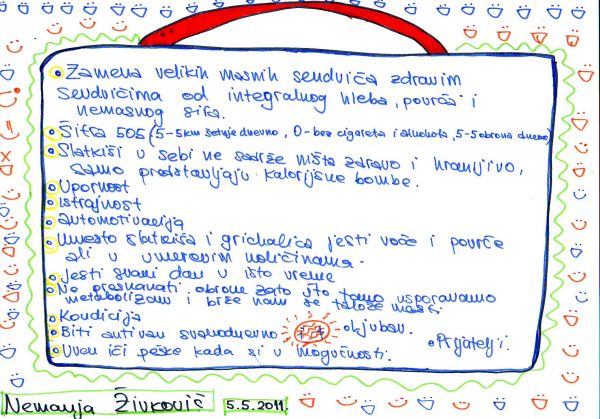 Zamena velikih masnih sendviča zdravim
sendvičima od integralnog hleba, povrća i
nemasnog sira.
Šifra 505 (5-5km šetnje dnevno, 0-bez cigareta i alkohola, 5-5 obroka dnevno)
Slatkiši u sebi ne sadrže ništa zdravo i hranljivo,
samo predstavljaju kalorijske bombe.
Upornost
istrajnost
automotivacija
Umesto slatkiša i grickalica jesti voće i povrće
ali u umerenim količinama.
Jesti svaki dan u isto vreme
Ne preskakati obroke zato što tamo usporavamo
metabolizam i brže nam se talože masti.
Kondicija
Biti aktivan svakodnevno ljubav. Prijatelji.
Uvek ići peške kada si u mogućnosti.
Nemanja Živković 5.5.2011.